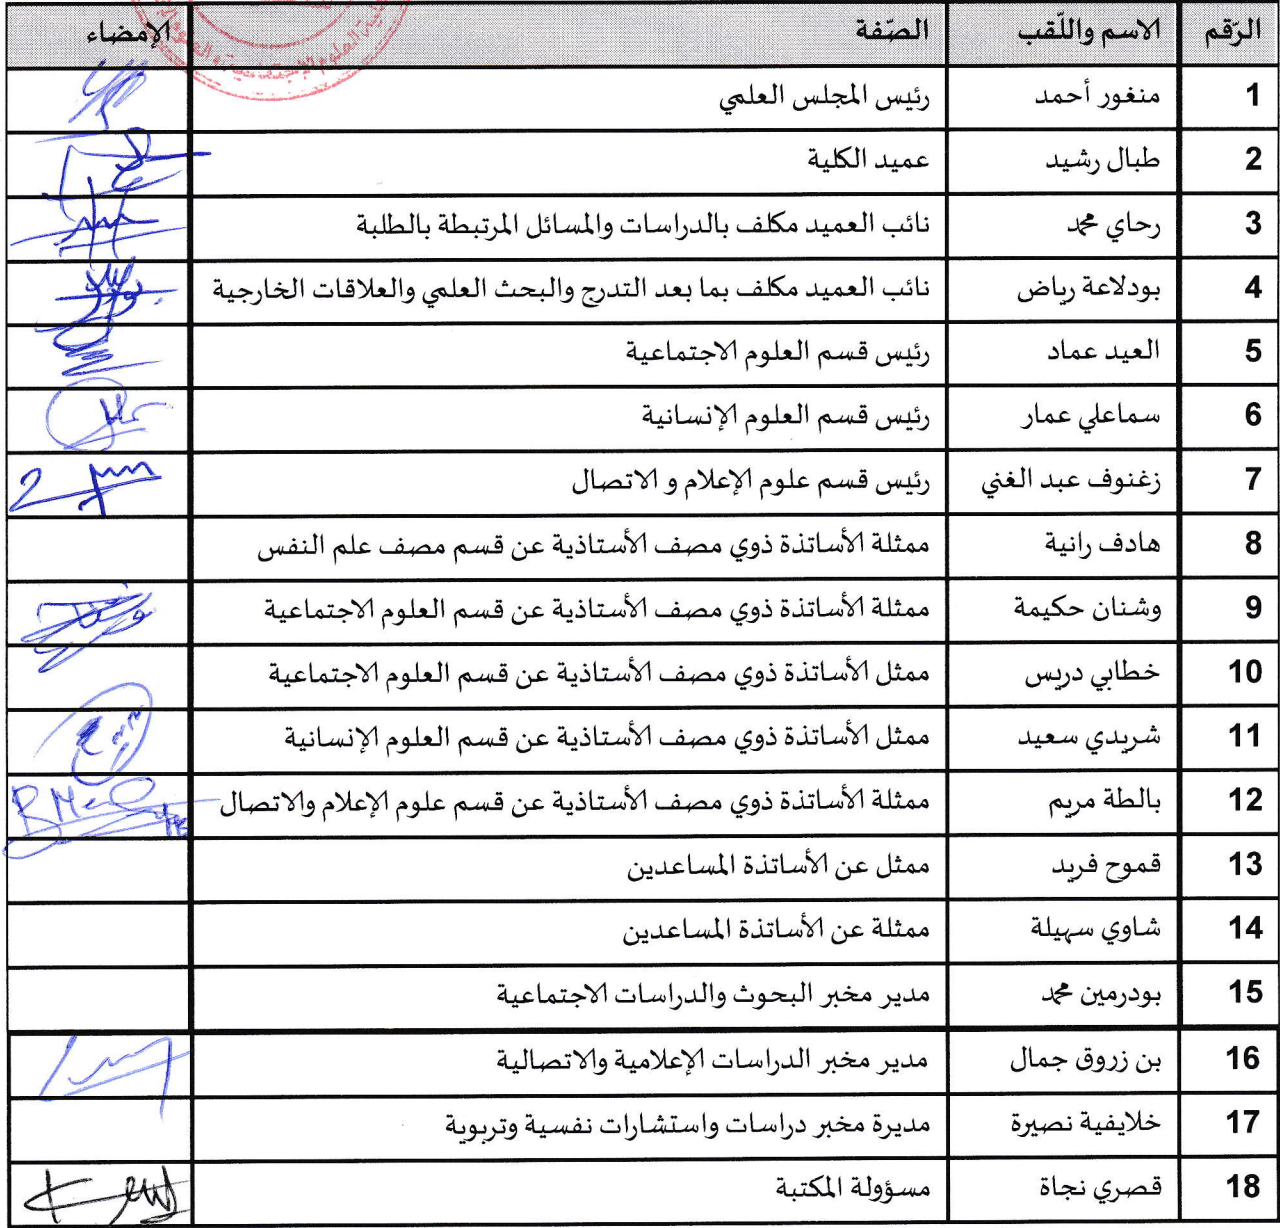 الرّقم الاسم واللّقب الصّفة الإمضاء
1 منغور أحمد رئيس المجلس العلمي
2 طبال رشيد عميد الكلية
3 رحاي محمد نائب العميد مكلف بالدراسات والمسائل المرتبطة بالطلبة
4 بودلاعة رياض نائب العميد مكلف بما بعد التدرج والبحث العلمي والعلاقات الخارجية
5 العيد عماد رئيس قسم العلوم الاجتماعية
6 سماعلي عمار رئيس قسم العلوم الإنسانية
7 زغنوف عبد الغني رئيس قسم علوم الإعلام و الاتصال
8 هادف رانية ممثلة الأساتذة ذوي مصف الأستاذية عن قسم مصف علم النفس
9 وشنان حكيمة ممثلة الأساتذة ذوي مصف الأستاذية عن قسم العلوم الاجتماعية
10 خطابي دريس ممثل الأساتذة ذوي مصف الأستاذية عن قسم العلوم الاجتماعية
11 شريدي سعيد ممثل الأساتذة ذوي مصف الأستاذية عن قسم العلوم الإنسانية
12 بالطة مريم ممثلة الأساتذة ذوي مصف الأستاذية عن قسم علوم الإعلام والاتصال
13 قموح فريد ممثل عن الأساتذة المساعدين
14 شاوي سهيلة ممثلة عن الأساتذة المساعدين
15 بودرمين محمد مدير مخبر البحوث والدراسات الاجتماعية
16 بن زروق جمال مدير مخبر الدراسات الإعلامية والاتصالية
17 خلايفية نصيرة مديرة مخبر دراسات واستشارات نفسية وتربوية
18 قصري نجاة مسؤولة المكتبة